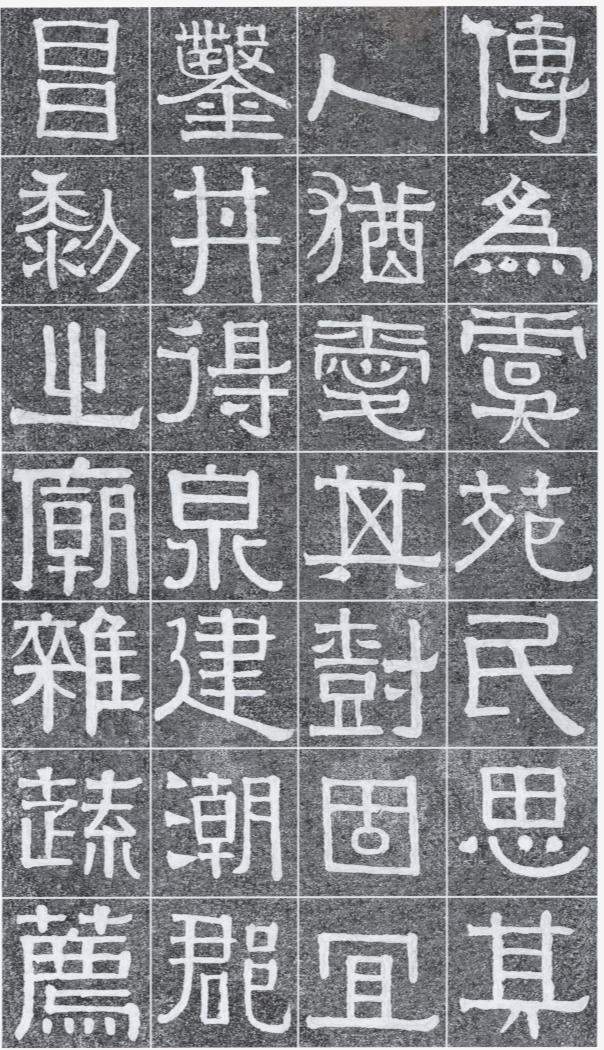 傳為虞苑民思其
人猶愛其樹固宜
鑿丼得泉建潮郡
昌黎之廟雜蔬薦